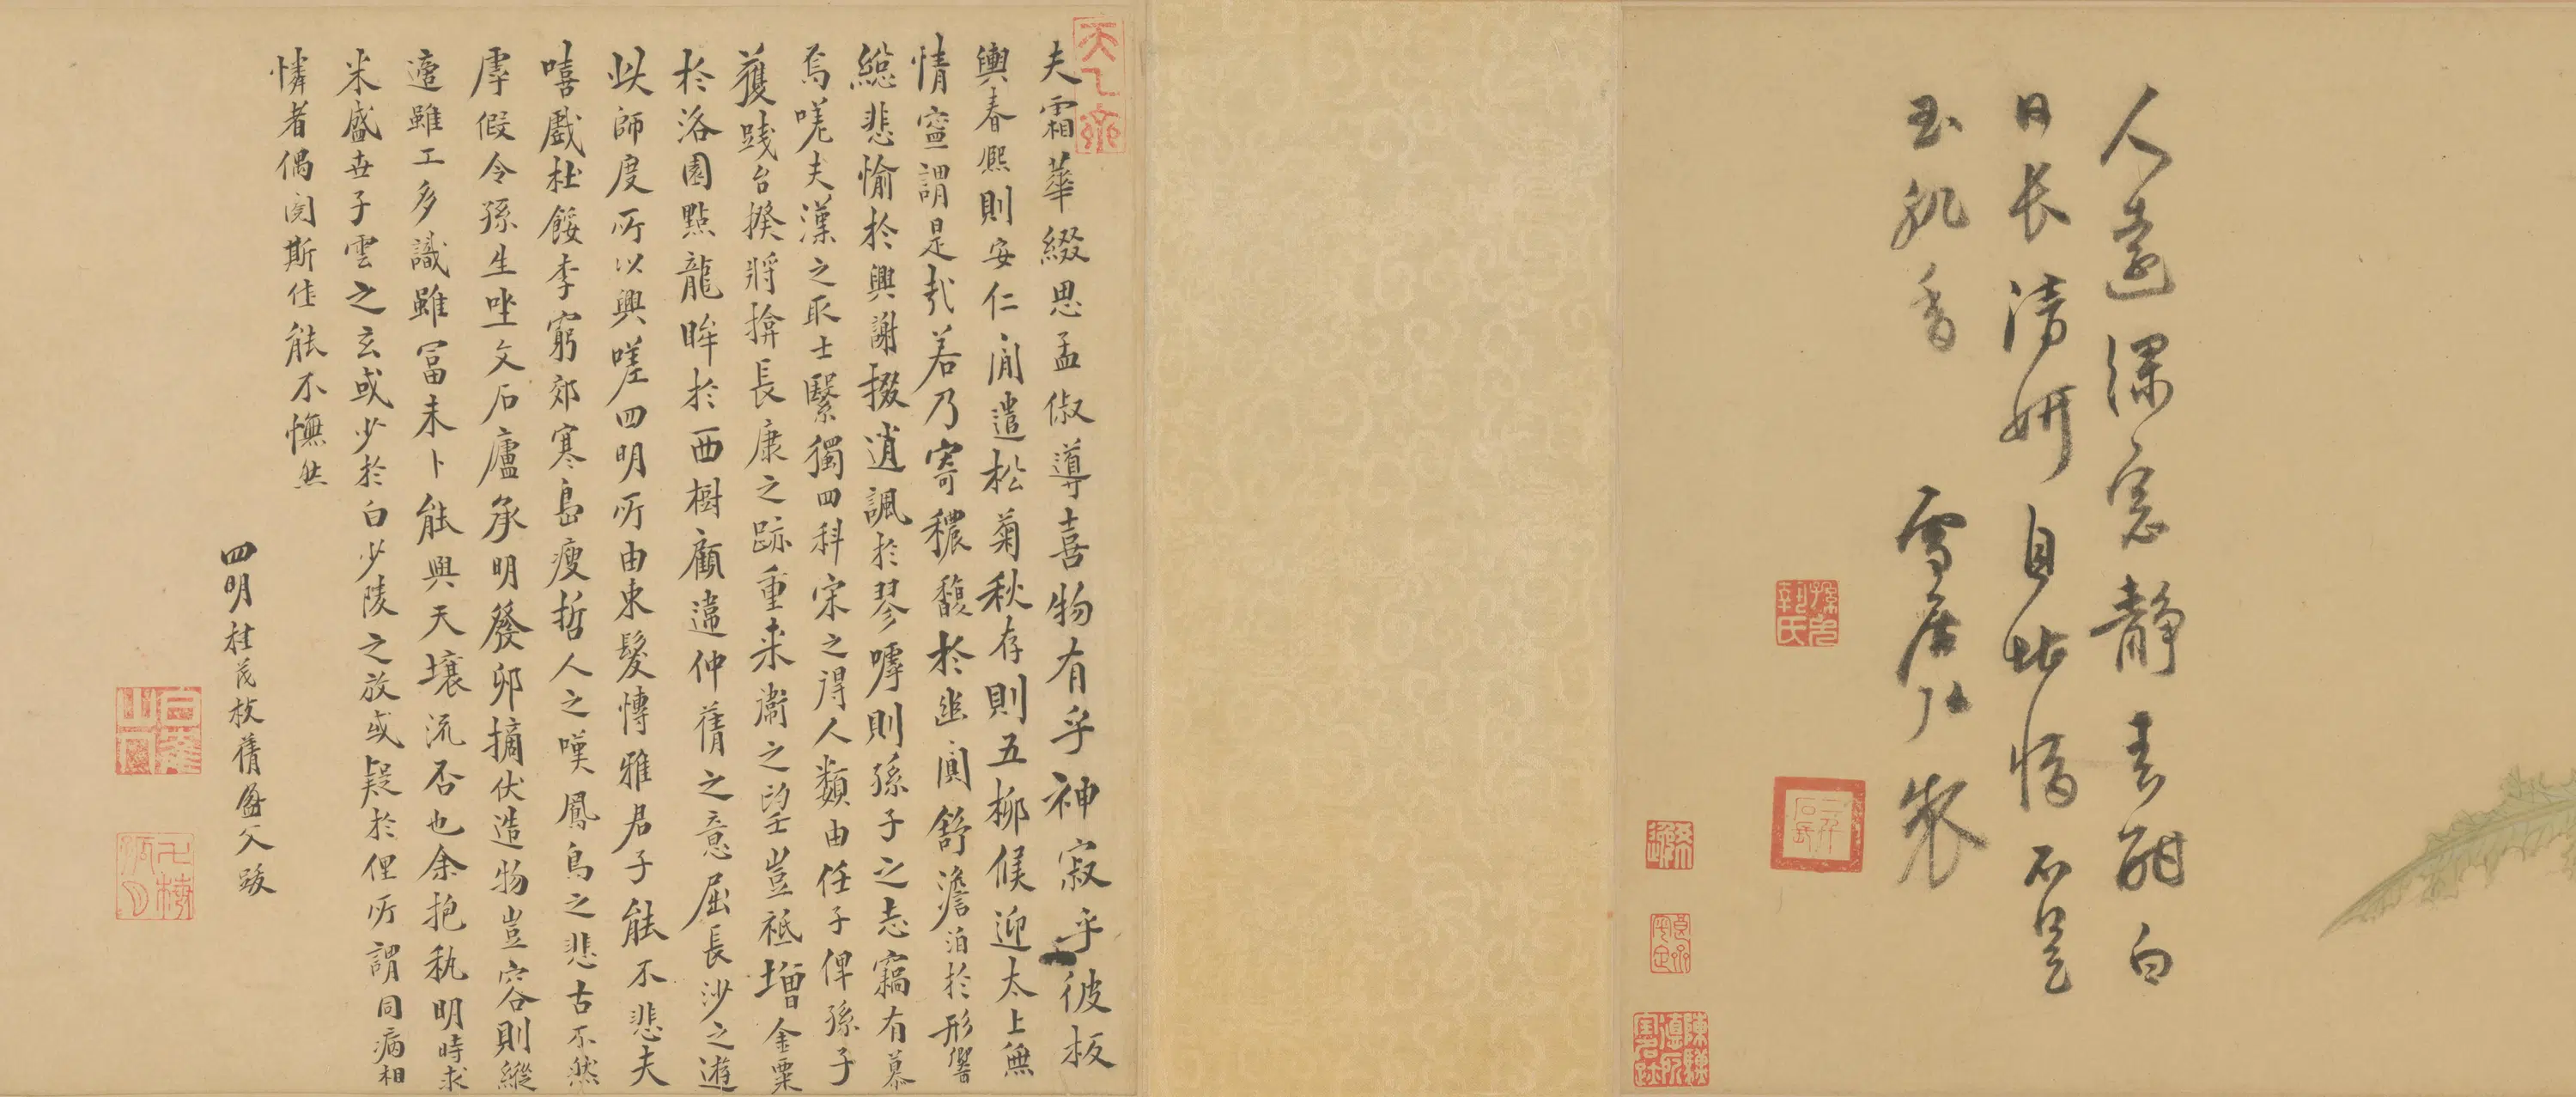 人遠深窓靜書甜白
日長清妍自比情不是
玉肌香 雪居弘製
夫霜華綴思孟俶導喜物有乎神寂乎彼板
輿春熙則安仁閒遣松菊秋存則五柳候迎太上無
情寍謂是弐若乃寄穠馥於幽闃舒澹泊於形響
緫悲愉於興謝掇逍諷於琴嘑則孫子之志竊有慕
焉嗟夫漢之取士繄獨四科宋之得人類由任子俾孫子
獲踐台揆將揜長康之跡重来衞之望豈祗增金粟
於洛園點龍眸於西樹顧違仲蒨之意屈長沙之遊
此師度所以興嗟四明所由束髮慱雅君子能不悲夫
嘻戲杜餒李窮郊寒島瘦哲人之嘆鳳鳥之悲古不然
虖假令孫生坐文石廬承明發卯摘伏造物豈容則縱
適雖工多識雖冨未卜能興天壤流否也余抱秇明時求
米盛世子雲之玄或少於白少陵之放或疑於俚所謂同病相
憐者偶閱斯佳能不憮然
四明桂茂枝蒨盦父跋